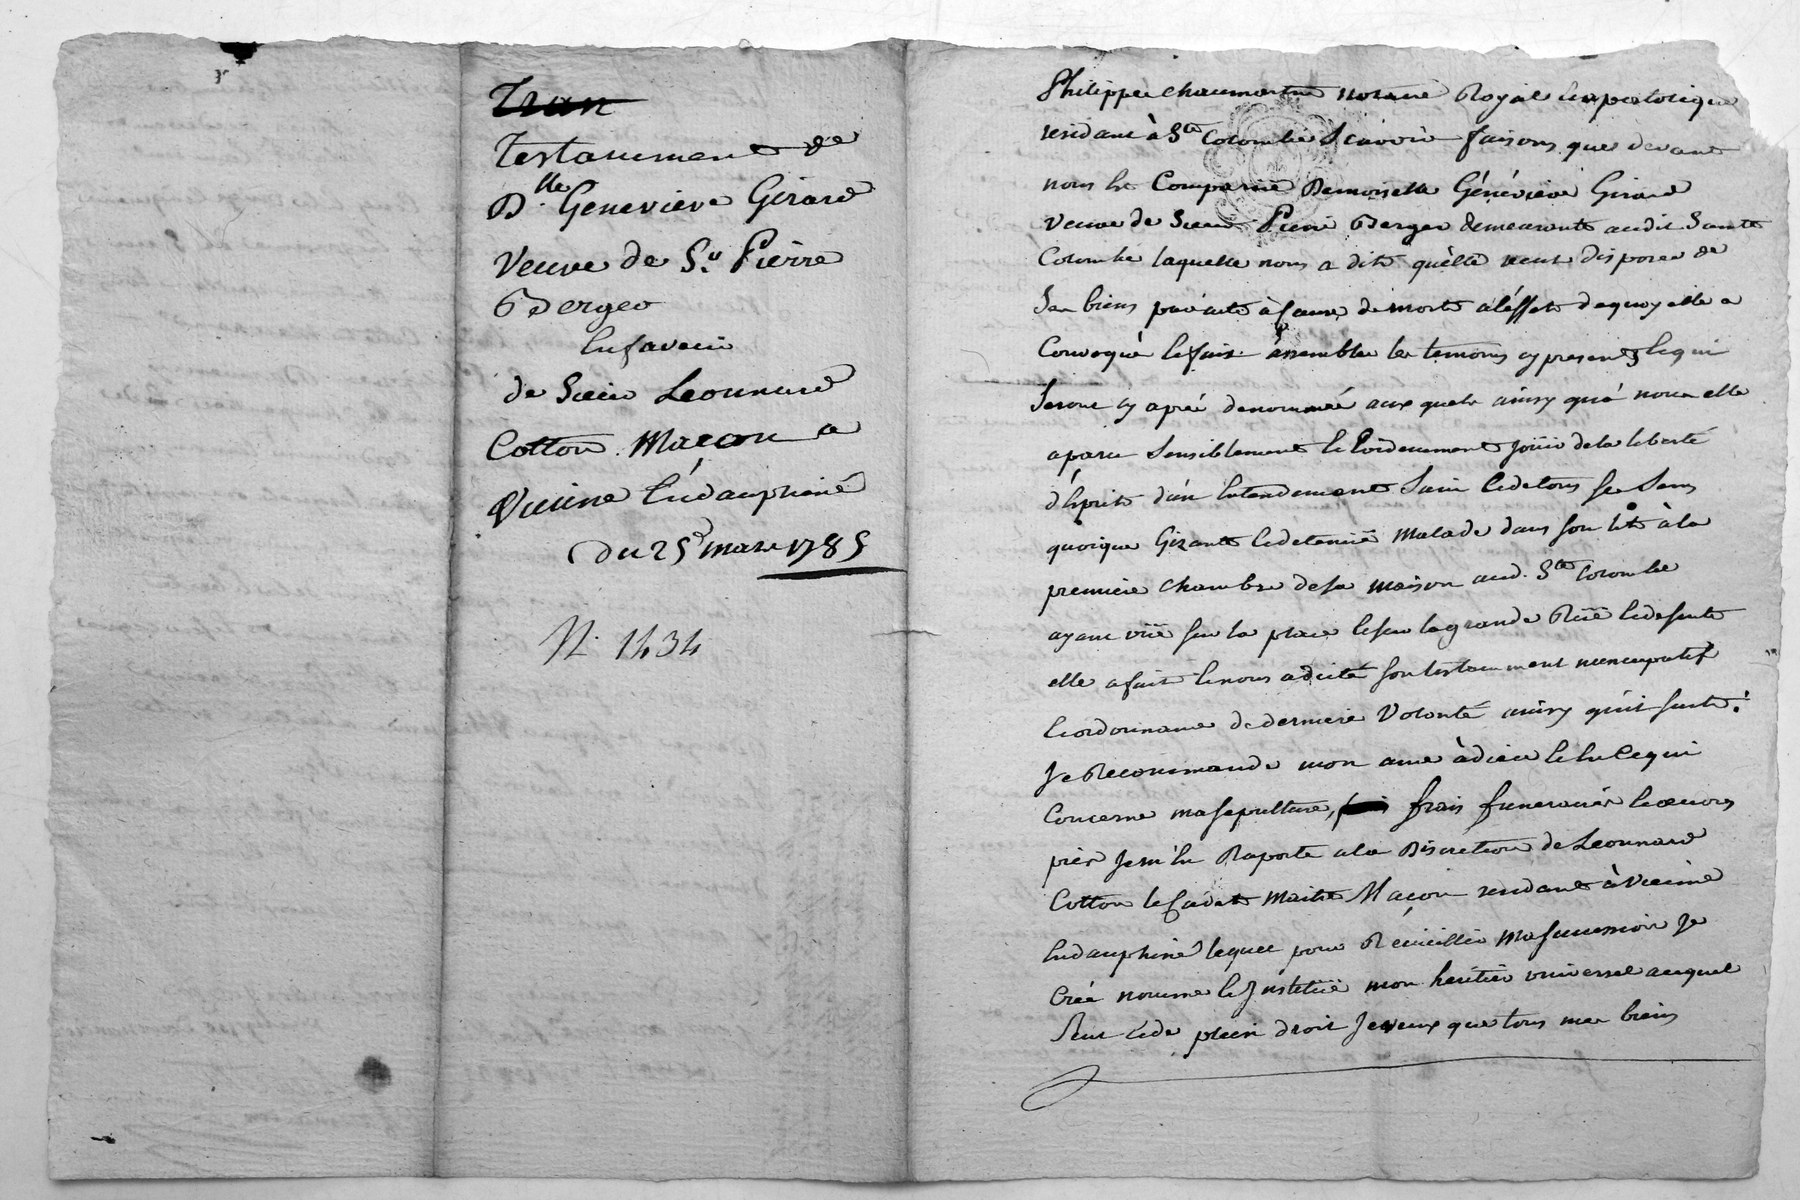 Tran
Testamment de
Dlle Genevieve Girard
Veuve de Sr Pierre
Berger
En faveur
de Sieur Leonnard
Cotton Maçon a
Vienne En dauphiné
du 25e mars 1785
N. 1434
Philippe Chaumartin notaire Royal Et apostolique
residant à Ste Colombe Scavoir faisons que devant
nous Est Comparüe Demoiselle Généviève Girard
Veuve de Sieur Pierre Berger demeurante audit Sainte
Colombe laquelle nous a dit qu'elle veut disposer de
Ses biens par acte à Cause de mort a l'éffet de quoy elle a
Convoqué Et fait assembler les temoins cy presents Et qui
Seront cy apreé denommeé aux quels ainsy qu'à nous elle
a paru Sensiblement Et Evidemment Joüir de la liberté
d'Esprit d'un Entendement Sain Et de tous Ses Sens
quoique Gizante Et detenüe Malade dans son lit à la
premiere chambre de sa maison aud. Ste Colombe
ayant vüe sur la place Et sur la grande Rüe Et de suite
elle a fait Et nous a dicté son testamment nuncupatif
Et ordonnance de derniere Volonté ainsy qu'il suit :
Je Recommande mon ame à dieu Et sur Ce qui
Concerne ma sepulture, frais funeraires Et œuvres
pies Je m'En Raporte a la Discretion de Leonnard
Cotton le Cadet Maitre Maçon residant à Vienne
En dauphiné lequel pour Recüeillir ma succession Je
Créé nomme Et Institüe mon heritier universel auquel
Seul Et de plein droit Je veux que tous mes biens